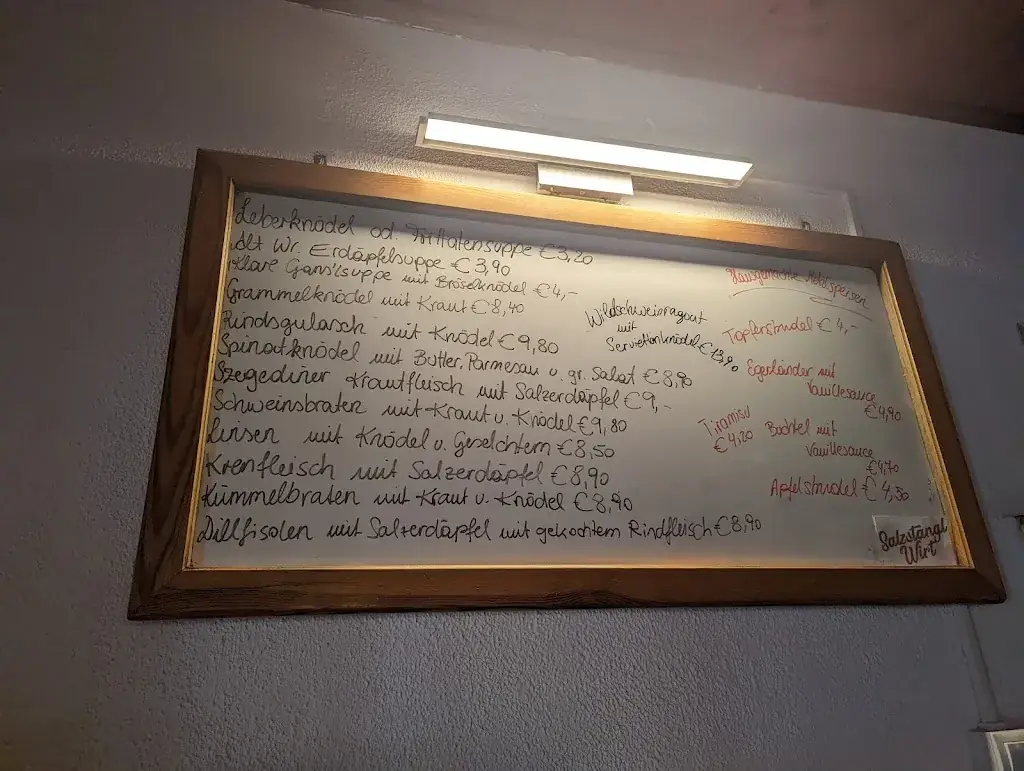 Leberknödel od. Frittatensuppe €3,20
Alt Wr. Erdäpfelsuppe €3,90
Klare Gans'lsuppe mit Bröselknödel €4,-
Grammelknödel mit Kraut €8,40
Rindsgulasch mit Knödel €9,80
Spinatknödel mit Butter, Parmesan u. gr. Salat €8,90
Szegediner Krautfleisch mit Salzerdäpfel €9,-
Schweinsbraten mit Kraut u. Knödel €9,80
Linsen mit Knödel u. Geselchtem €8,50
Krenfleisch mit Salzerdäpfel €8,90
Kümmelbraten mit Kraut u. Knödel €8,90
Dillfisolen mit Salzerdäpfel mit gekochtem Rindfleisch €8,90
Wildschweinragout
mit
Serviettenknödel €13,90
Hausgemachte Mehlspeisen
Topfenstrudel €4,-
Egerländer mit
Vanillesauce
€4,90
Tiramisu
€4,20
Buchtel mit
Vanillesauce
€4,70
Apfelstrudel €4,50
Salzstangl
Wirt